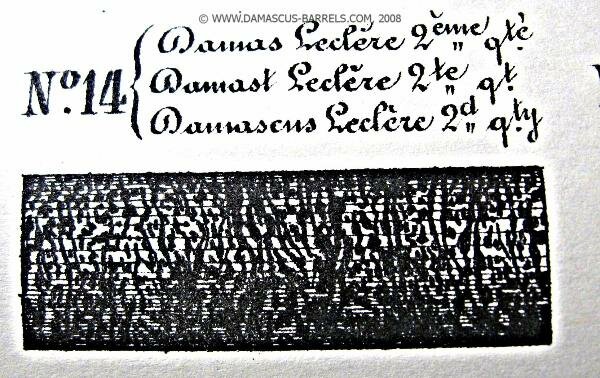 © WWW.DAMASCUS-BARRELS.COM, 2008
Damas Leclère 2ème qté
Nº.14 Damast Leclère 2te qt
Damascus Leclère 2d qty